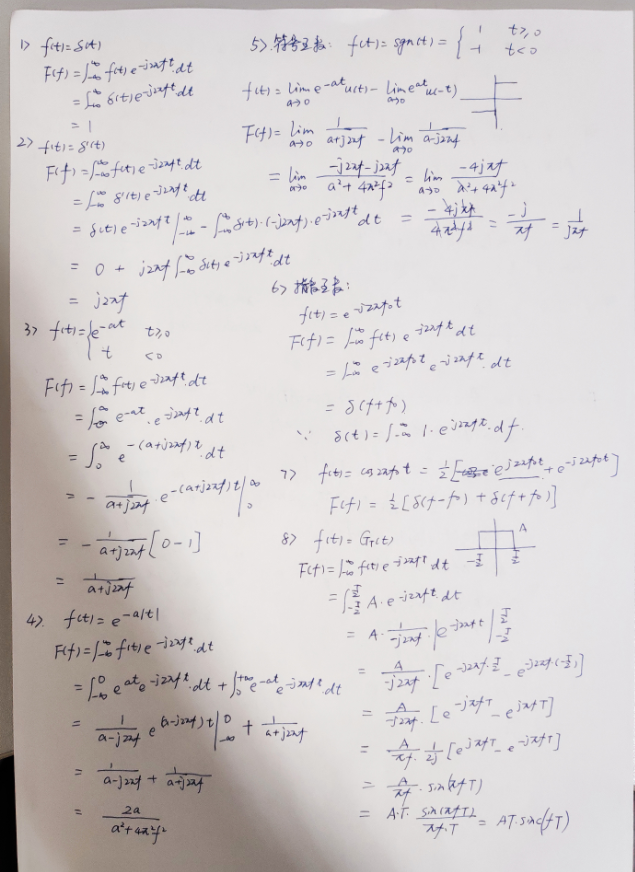 1> f(t)=δ(t)
F(f)=∫_{-∞}^{∞} f(t) e^{-j2πft}·dt
=∫_{-∞}^{∞} δ(t) e^{-j2πft}·dt
= 1
2> f(t)=δ'(t)
F(f)=∫_{-∞}^{∞} f(t) e^{-j2πft}·dt
=∫_{-∞}^{∞} δ'(t) e^{-j2πft}·dt
= δ(t) e^{-j2πft} |_{-∞}^{∞} - ∫_{-∞}^{∞} δ(t)·(-j2πf)·e^{-j2πft} dt
= 0 + j2πf ∫_{-∞}^{∞} δ(t) e^{-j2πft}·dt
= j2πf
3> f(t)= { e^{-at} t≥0
t <0
F(f)=∫_{-∞}^{∞} f(t) e^{-j2πft}·dt
=∫_{0}^{∞} e^{-at}·e^{-j2πft}·dt
=∫_{0}^{∞} e^{-(a+j2πf)t}·dt
= - 1/(a+j2πf) · e^{-(a+j2πf)t} |_{0}^{∞}
= - 1/(a+j2πf) [0-1]
= 1/(a+j2πf)
4> f(t)= e^{-a|t|}
F(f)=∫_{-∞}^{∞} f(t) e^{-j2πft}·dt
=∫_{-∞}^{0} e^{at} e^{-j2πft}·dt + ∫_{0}^{+∞} e^{-at} e^{-j2πft}·dt
= 1/(a-j2πf) e^{(a-j2πf)t} |_{-∞}^{0} + 1/(a+j2πf)
= 1/(a-j2πf) + 1/(a+j2πf)
= 2a/(a²+4π²f²)
5> 符号函数: f(t)=sgn(t)= { 1 t≥0
-1 t<0
f(t)= lim_{a→0} e^{-at}u(t) - lim_{a→0} e^{at}u(-t)
F(f)= lim_{a→0} 1/(a+j2πf) - lim_{a→0} 1/(a-j2πf)
= lim_{a→0} (-j2πf-j2πf)/(a²+4π²f²) = lim_{a→0} (-4jπf)/(a²+4π²f²)
= (-4jπf)/(4π²f²) = -j/(πf) = 1/(jπf)
6> 指数函数:
f(t)=e^{-j2πf₀t}
F(f)= ∫_{-∞}^{∞} f(t) e^{-j2πft} dt
=∫_{-∞}^{∞} e^{-j2πf₀t} e^{-j2πft}·dt
= δ(f+f₀)
∵ δ(t)=∫_{-∞}^{∞} 1·e^{j2πft}·df
7> f(t)= cos2πf₀t = 1/2 [e^{j2πf₀t} + e^{-j2πf₀t}]
F(f)= 1/2 [δ(f-f₀) + δ(f+f₀)]
8> f(t)= G_T(t)
A
-T/2 T/2
F(f)=∫_{-∞}^{∞} f(t) e^{-j2πft} dt
=∫_{-T/2}^{T/2} A·e^{-j2πft}·dt
= A· 1/(-j2πf) · |e^{-j2πft} |_{-T/2}^{T/2}
= A/(-j2πf) · [e^{-j2πf·T/2} - e^{-j2πf(-T/2)}]
= A/(-j2πf) · [e^{-jπfT} - e^{jπfT}]
= A/(πf) · 1/(2j) [e^{jπfT} - e^{-jπfT}]
= A/(πf) · sin(πfT)
= A·T· sin(πfT)/(πf·T) = AT·sinc(fT)